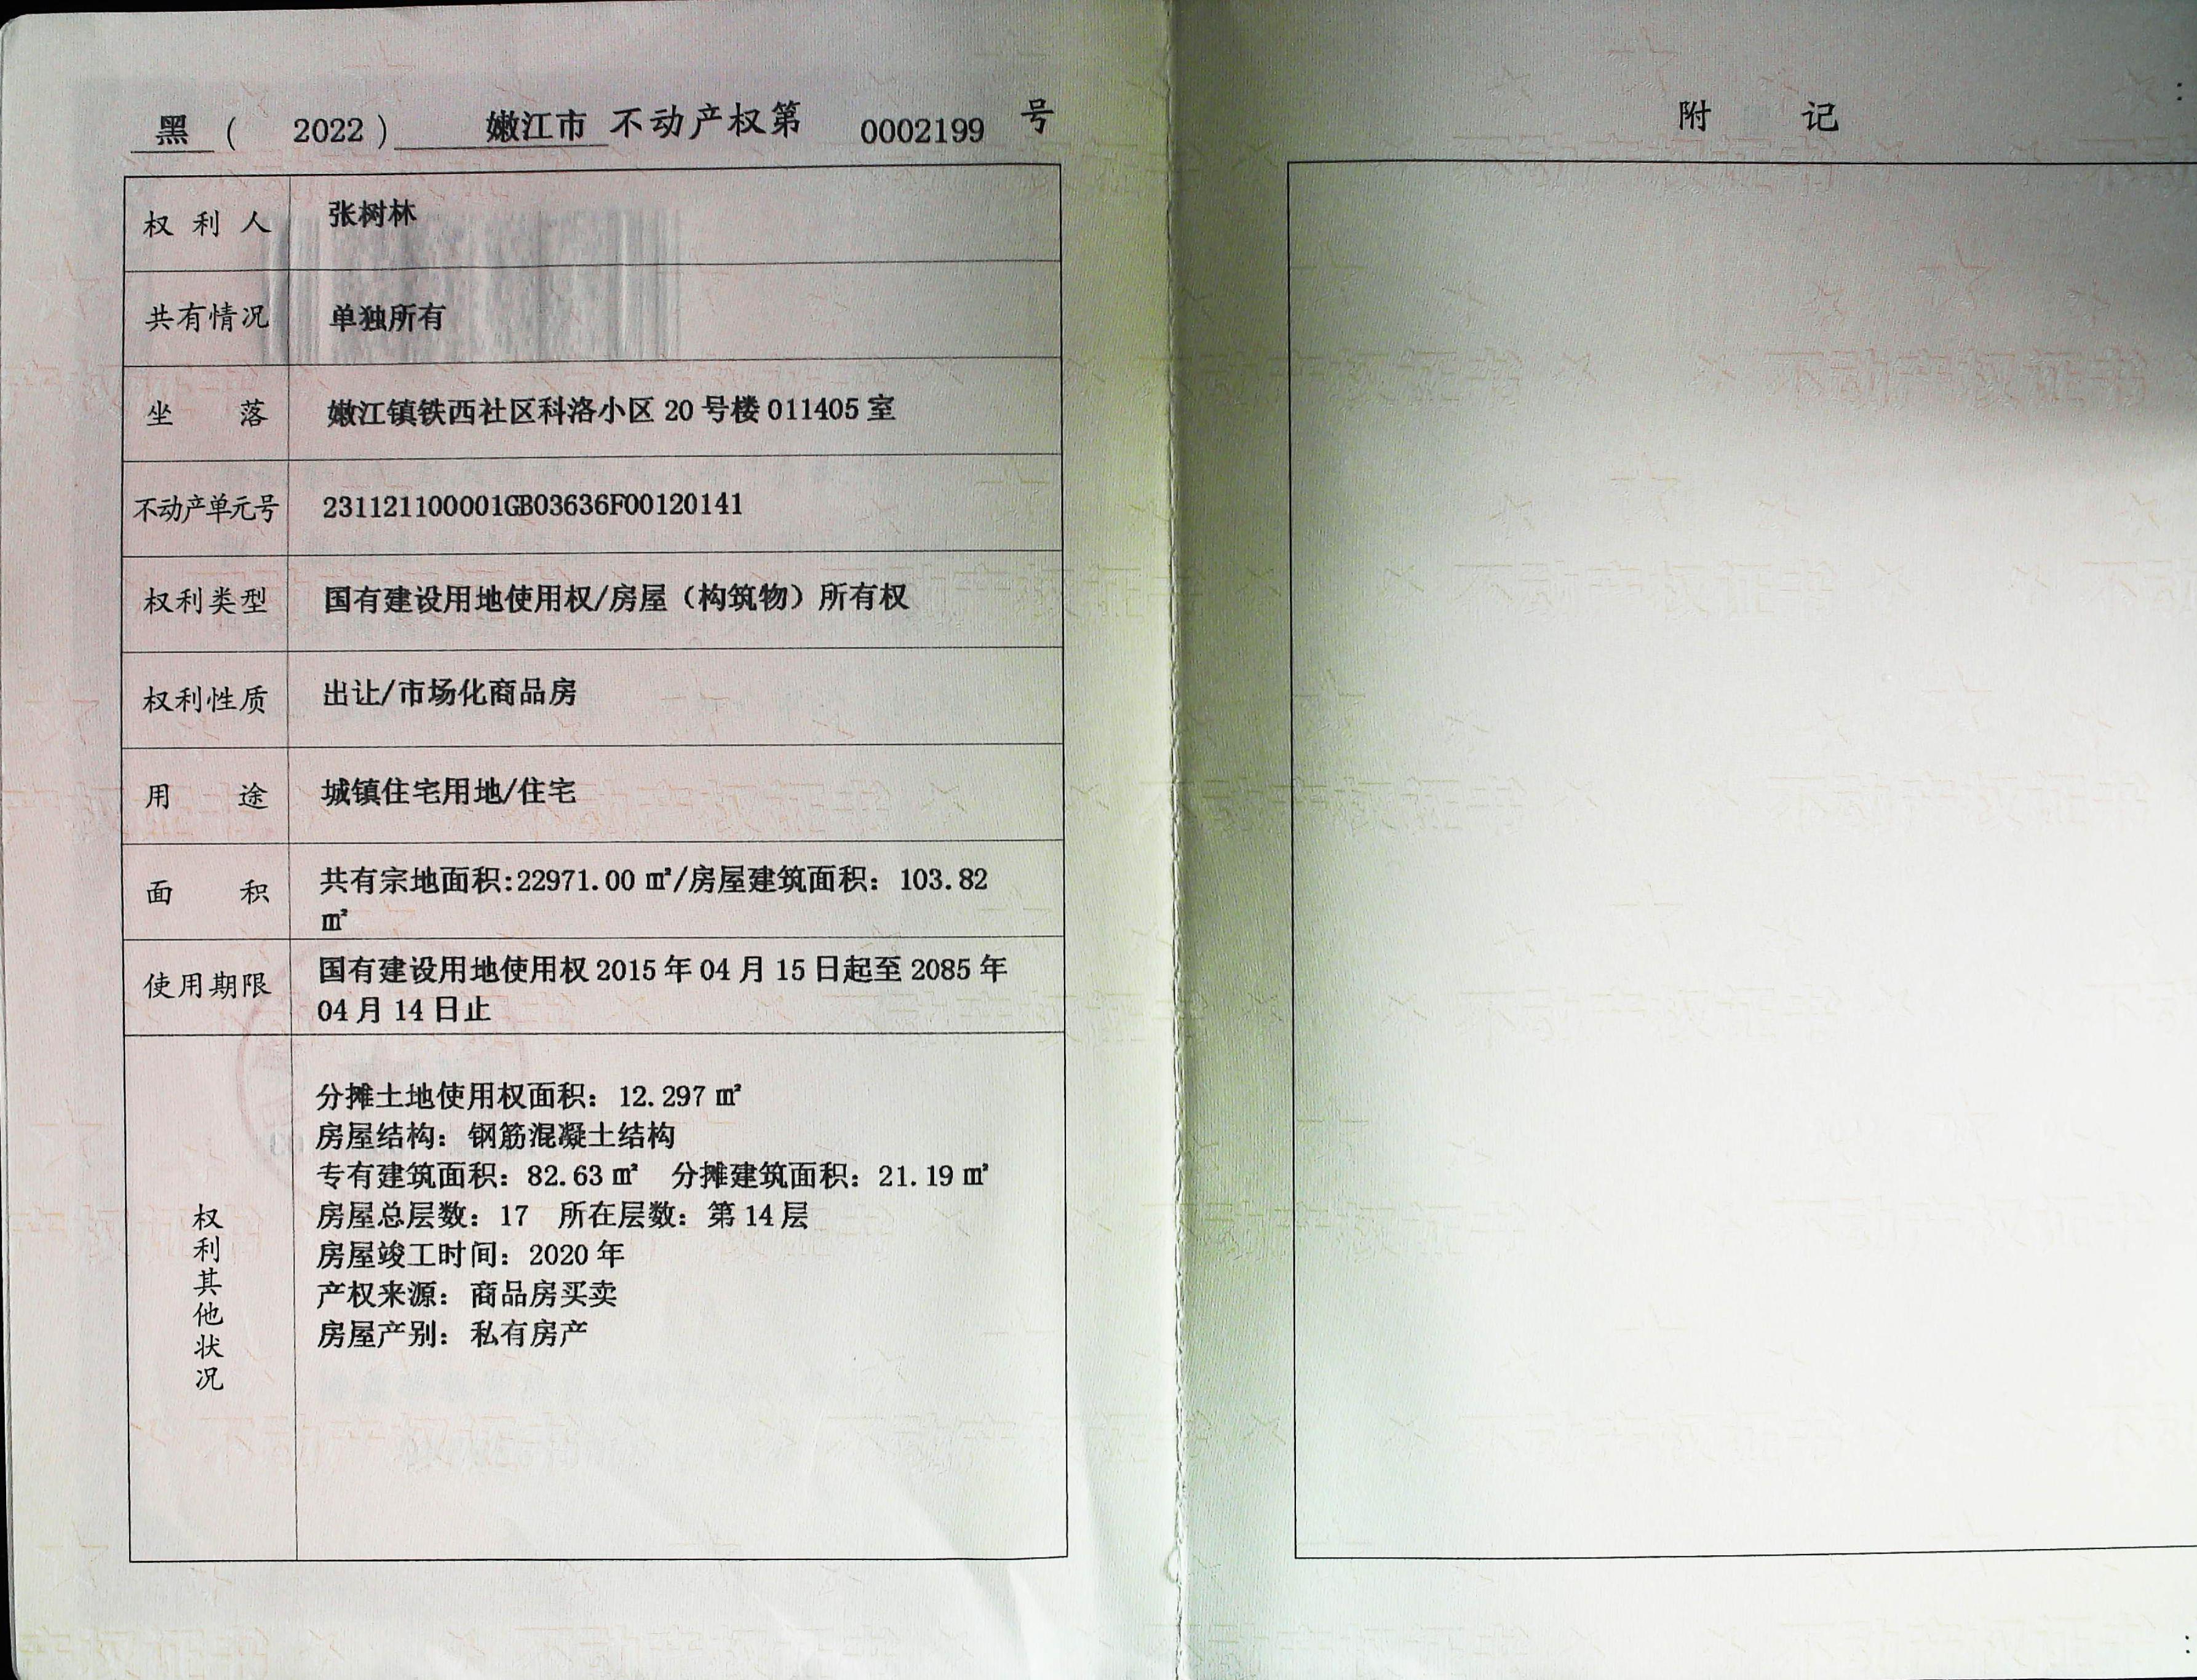 黑 ( 2022 ) 嫩江市 不动产权第 0002199 号
权利人 张树林
共有情况 单独所有
坐落 嫩江镇铁西社区科洛小区 20 号楼 011405 室
不动产单元号 231121100001GB03636F00120141
权利类型 国有建设用地使用权/房屋（构筑物）所有权
权利性质 出让/市场化商品房
用途 城镇住宅用地/住宅
面积 共有宗地面积:22971.00 ㎡/房屋建筑面积：103.82
㎡
使用期限 国有建设用地使用权 2015 年 04 月 15 日起至 2085 年
04 月 14 日止
权利其他状况
分摊土地使用权面积：12.297 ㎡
房屋结构：钢筋混凝土结构
专有建筑面积：82.63 ㎡ 分摊建筑面积：21.19 ㎡
房屋总层数：17 所在层数：第 14 层
房屋竣工时间：2020 年
产权来源：商品房买卖
房屋产别：私有房产
附记